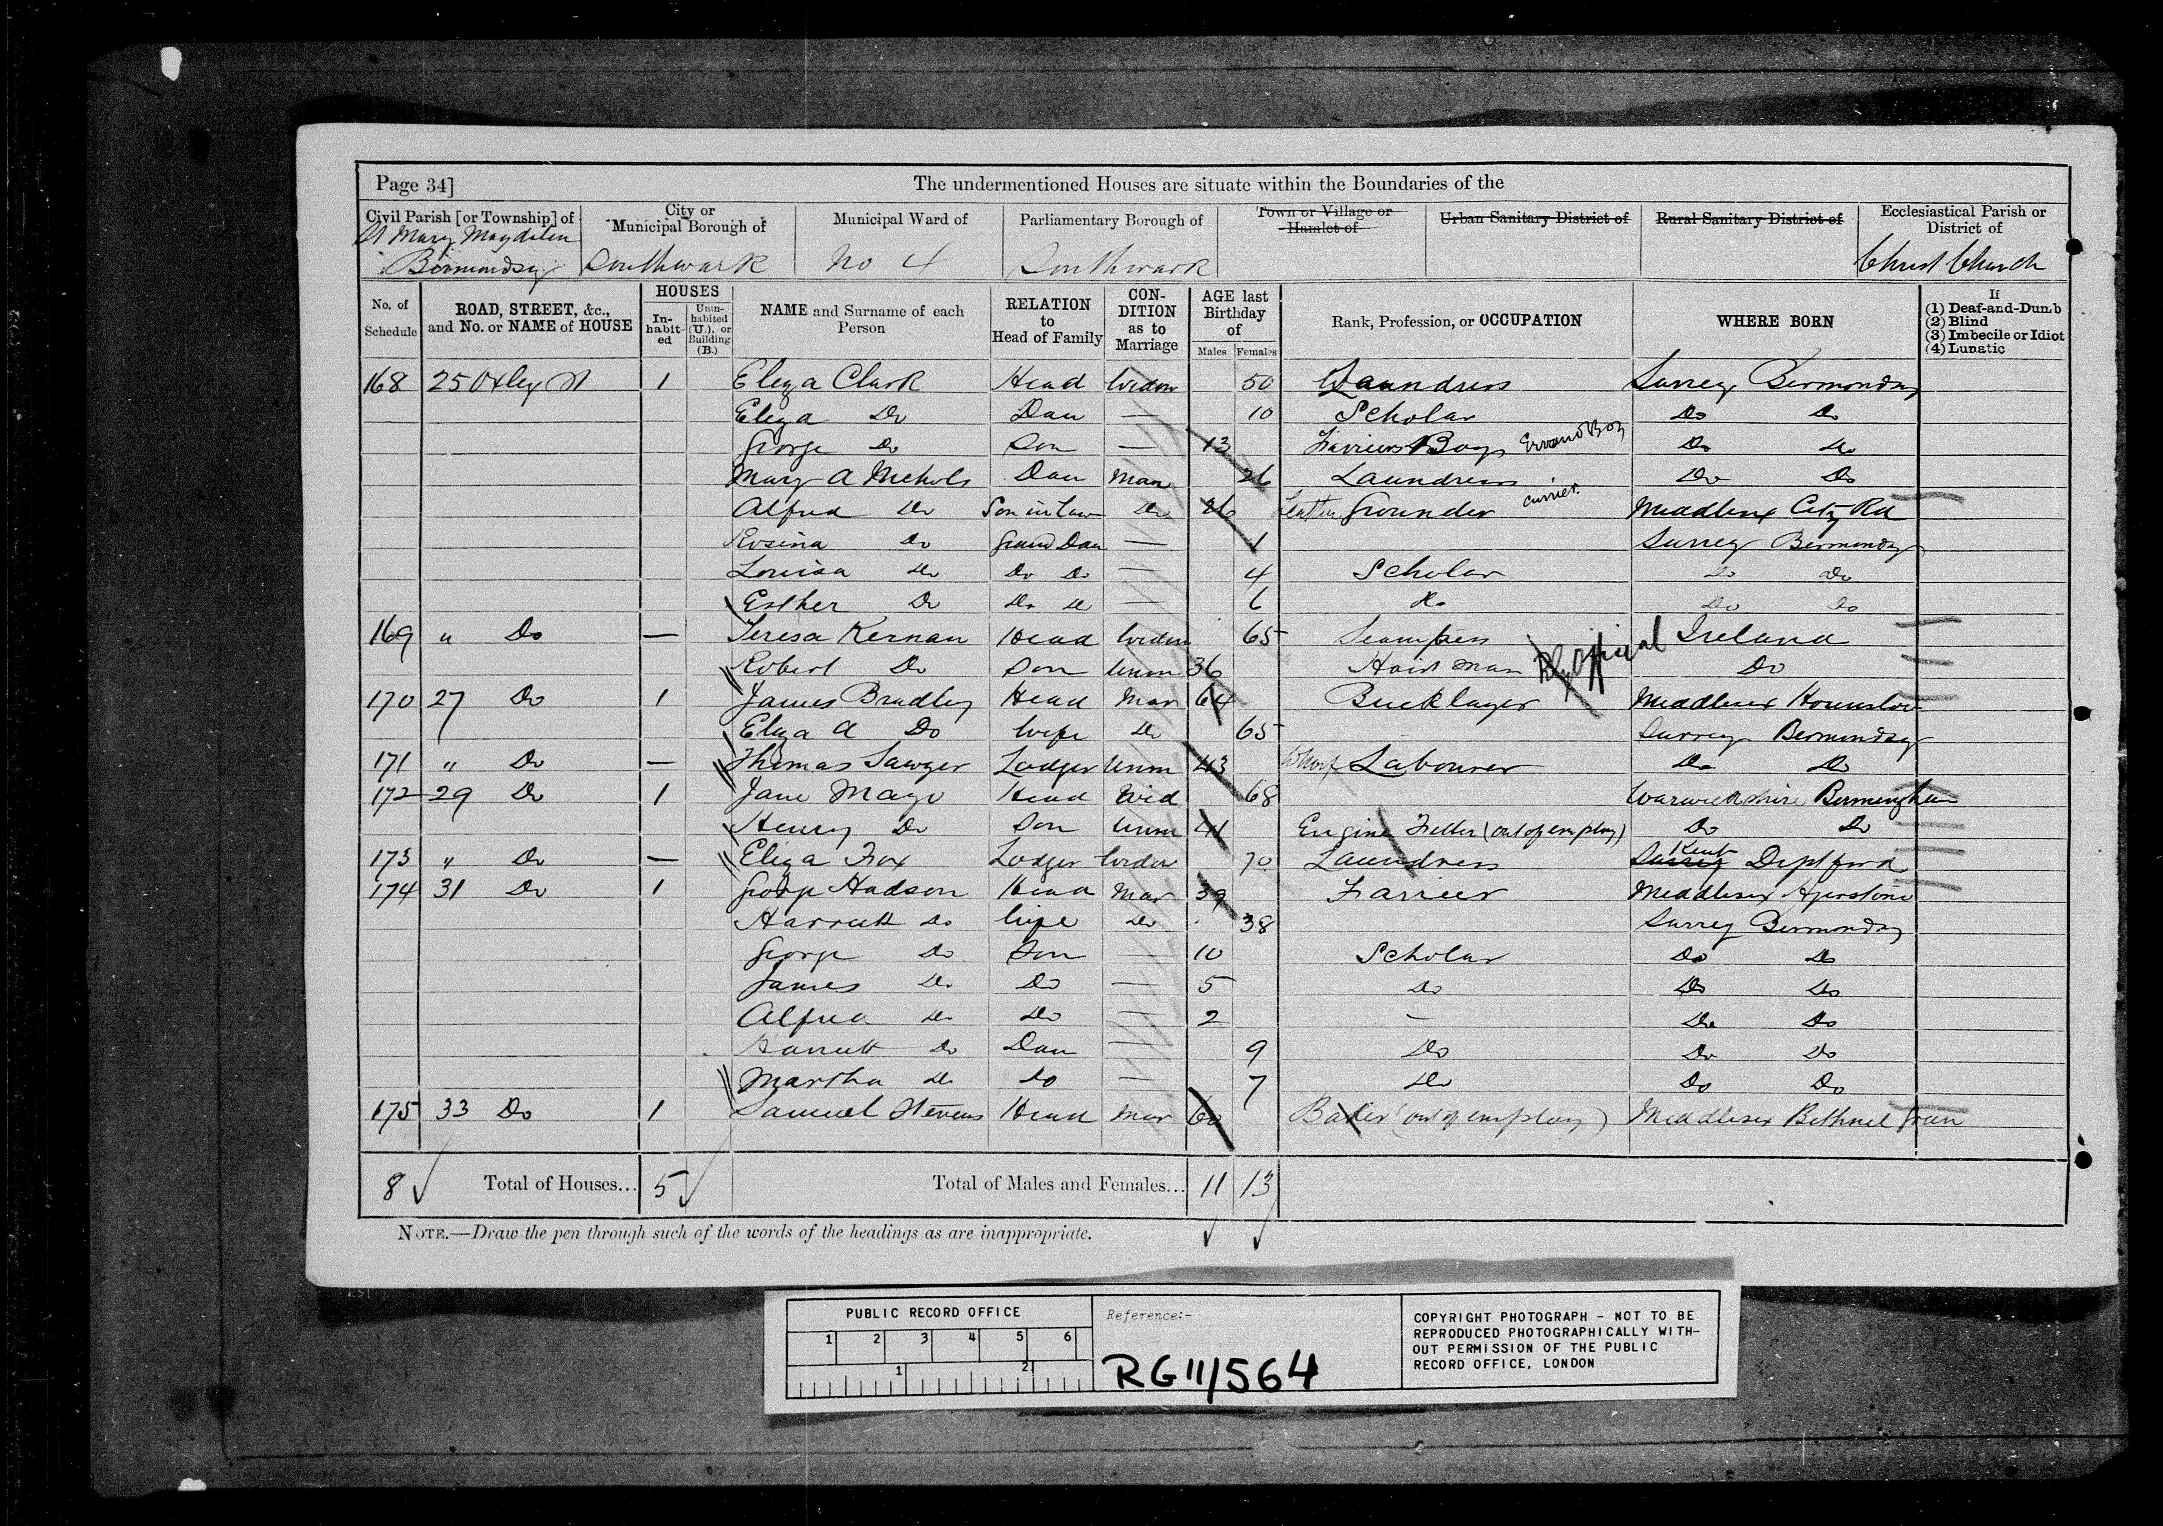 Page 34] The undermentioned Houses are situate within the Boundaries of the
Civil Parish [or Township] of City or Municipal Borough of Municipal Ward of Parliamentary Borough of Town or Village or Hamlet of Urban Sanitary District of Rural Sanitary District of Ecclesiastical Parish or District of
St Mary Magdalen Bermondsey Southwark No 4 Southwark Christ Church
No. of Schedule ROAD, STREET, &c., and No. or NAME of HOUSE HOUSES Inhabited Uninhabited (U.), or Building (B.) NAME and Surname of each Person RELATION to Head of Family CONDITION as to Marriage AGE last Birthday of Males Females Rank, Profession, or OCCUPATION WHERE BORN If (1) Deaf-and-Dumb (2) Blind (3) Imbecile or Idiot (4) Lunatic
168 25 Oxley St 1 Eliza Clark Head Widow 50 Laundress Surrey Bermondsey
Eliza Do Dau — 10 Scholar Do Do
George Do Son — 13 Farriers Boy Errand Boy Do Do
Mary A Nichols Dau Mar 26 Laundress Do Do
Alfred Do Son in Law Do 26 Leather Grounder Currier Middlesex City Rd
Rosina Do Grand Dau — 1 Surrey Bermondsey
Louisa Do Do Do — 4 Scholar Do Do
Esther Do Do Do — 6 Do Do Do
169 " Do — Teresa Kernan Head Widow 65 Ireland
Robert Do Son Unm 36 Do
170 27 Do 1 James Bradley Head Mar 64 Bricklayer Middlesex Hounslow
Eliza A Do Wife Do 65 Surrey Bermondsey
171 " Do — Thomas Sawyer Lodger Unm 43 Wharf Labourer Do Do
172 29 Do 1 Jane Mayo Head Wid 68 Warwickshire Birmingham
Henry Do Son Unm 41 Engine Fitter (out of employ) Do Do
173 " Do — Eliza Fox Lodger Widow 70 Laundress Surrey Kent Deptford
174 31 Do 1 George Hudson Head Mar 39 Farrier Middlesex
Harriett Do Wife Do 38 Surrey Bermondsey
George Do Son — 10 Scholar Do Do
James Do Do — 5 Do Do Do
Alfred Do Do — 2 — Do Do
Harriett Do Dau — 9 Do Do Do
Martha Do Do — 7 Do Do Do
175 33 Do 1 Samuel Stevens Head Mar 60 Baker (out of employ) Middlesex Bethnel Green
8 Total of Houses... 5 Total of Males and Females... 11 13
NOTE.—Draw the pen through such of the words of the headings as are inappropriate.
PUBLIC RECORD OFFICE
1 2 3 4 5 6
1 2
Reference:-
RG 11/564
COPYRIGHT PHOTOGRAPH - NOT TO BE
REPRODUCED PHOTOGRAPHICALLY WITH-
OUT PERMISSION OF THE PUBLIC
RECORD OFFICE, LONDON